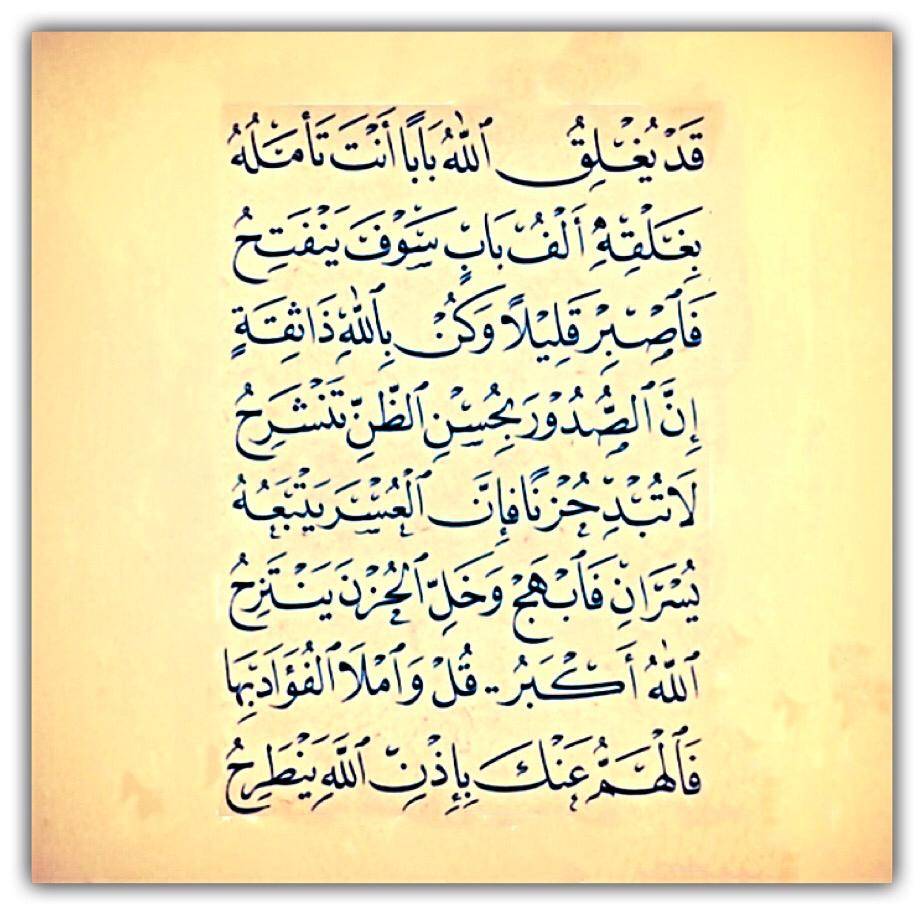 قَدْ يُغْلِقُ اللّٰهُ بَابًا أَنْتَ تَأْمَلُهُ
بِغَلْقِهِ أَلْفُ بَابٍ سَوْفَ يَنْفَتِحُ
فَٱصْبِرْ قَلِيْلًا وَكُنْ بِٱللّٰهِ ذَا ثِقَةٍ
إِنَّ ٱلصُّدُوْرَ بِحُسْنِ ٱلظَّنِّ تَنْشَرِحُ
لَا تُبْدِ حُزْنًا فَإِنَّ ٱلْعُسْرَ يَتْبَعُهُ
يُسْرَانِ فَٱبْهَجْ وَخَلِّ ٱلْحُزْنَ يَنْتَزِحُ
ٱللّٰهُ أَكْبَرُ .. قُلْ وَٱمْلَا ٱلْفُؤَادَ بِهَا
فَٱلْهَمُّ عَنْكَ بِإِذْنِ ٱللّٰهِ يَنْطَرِحُ